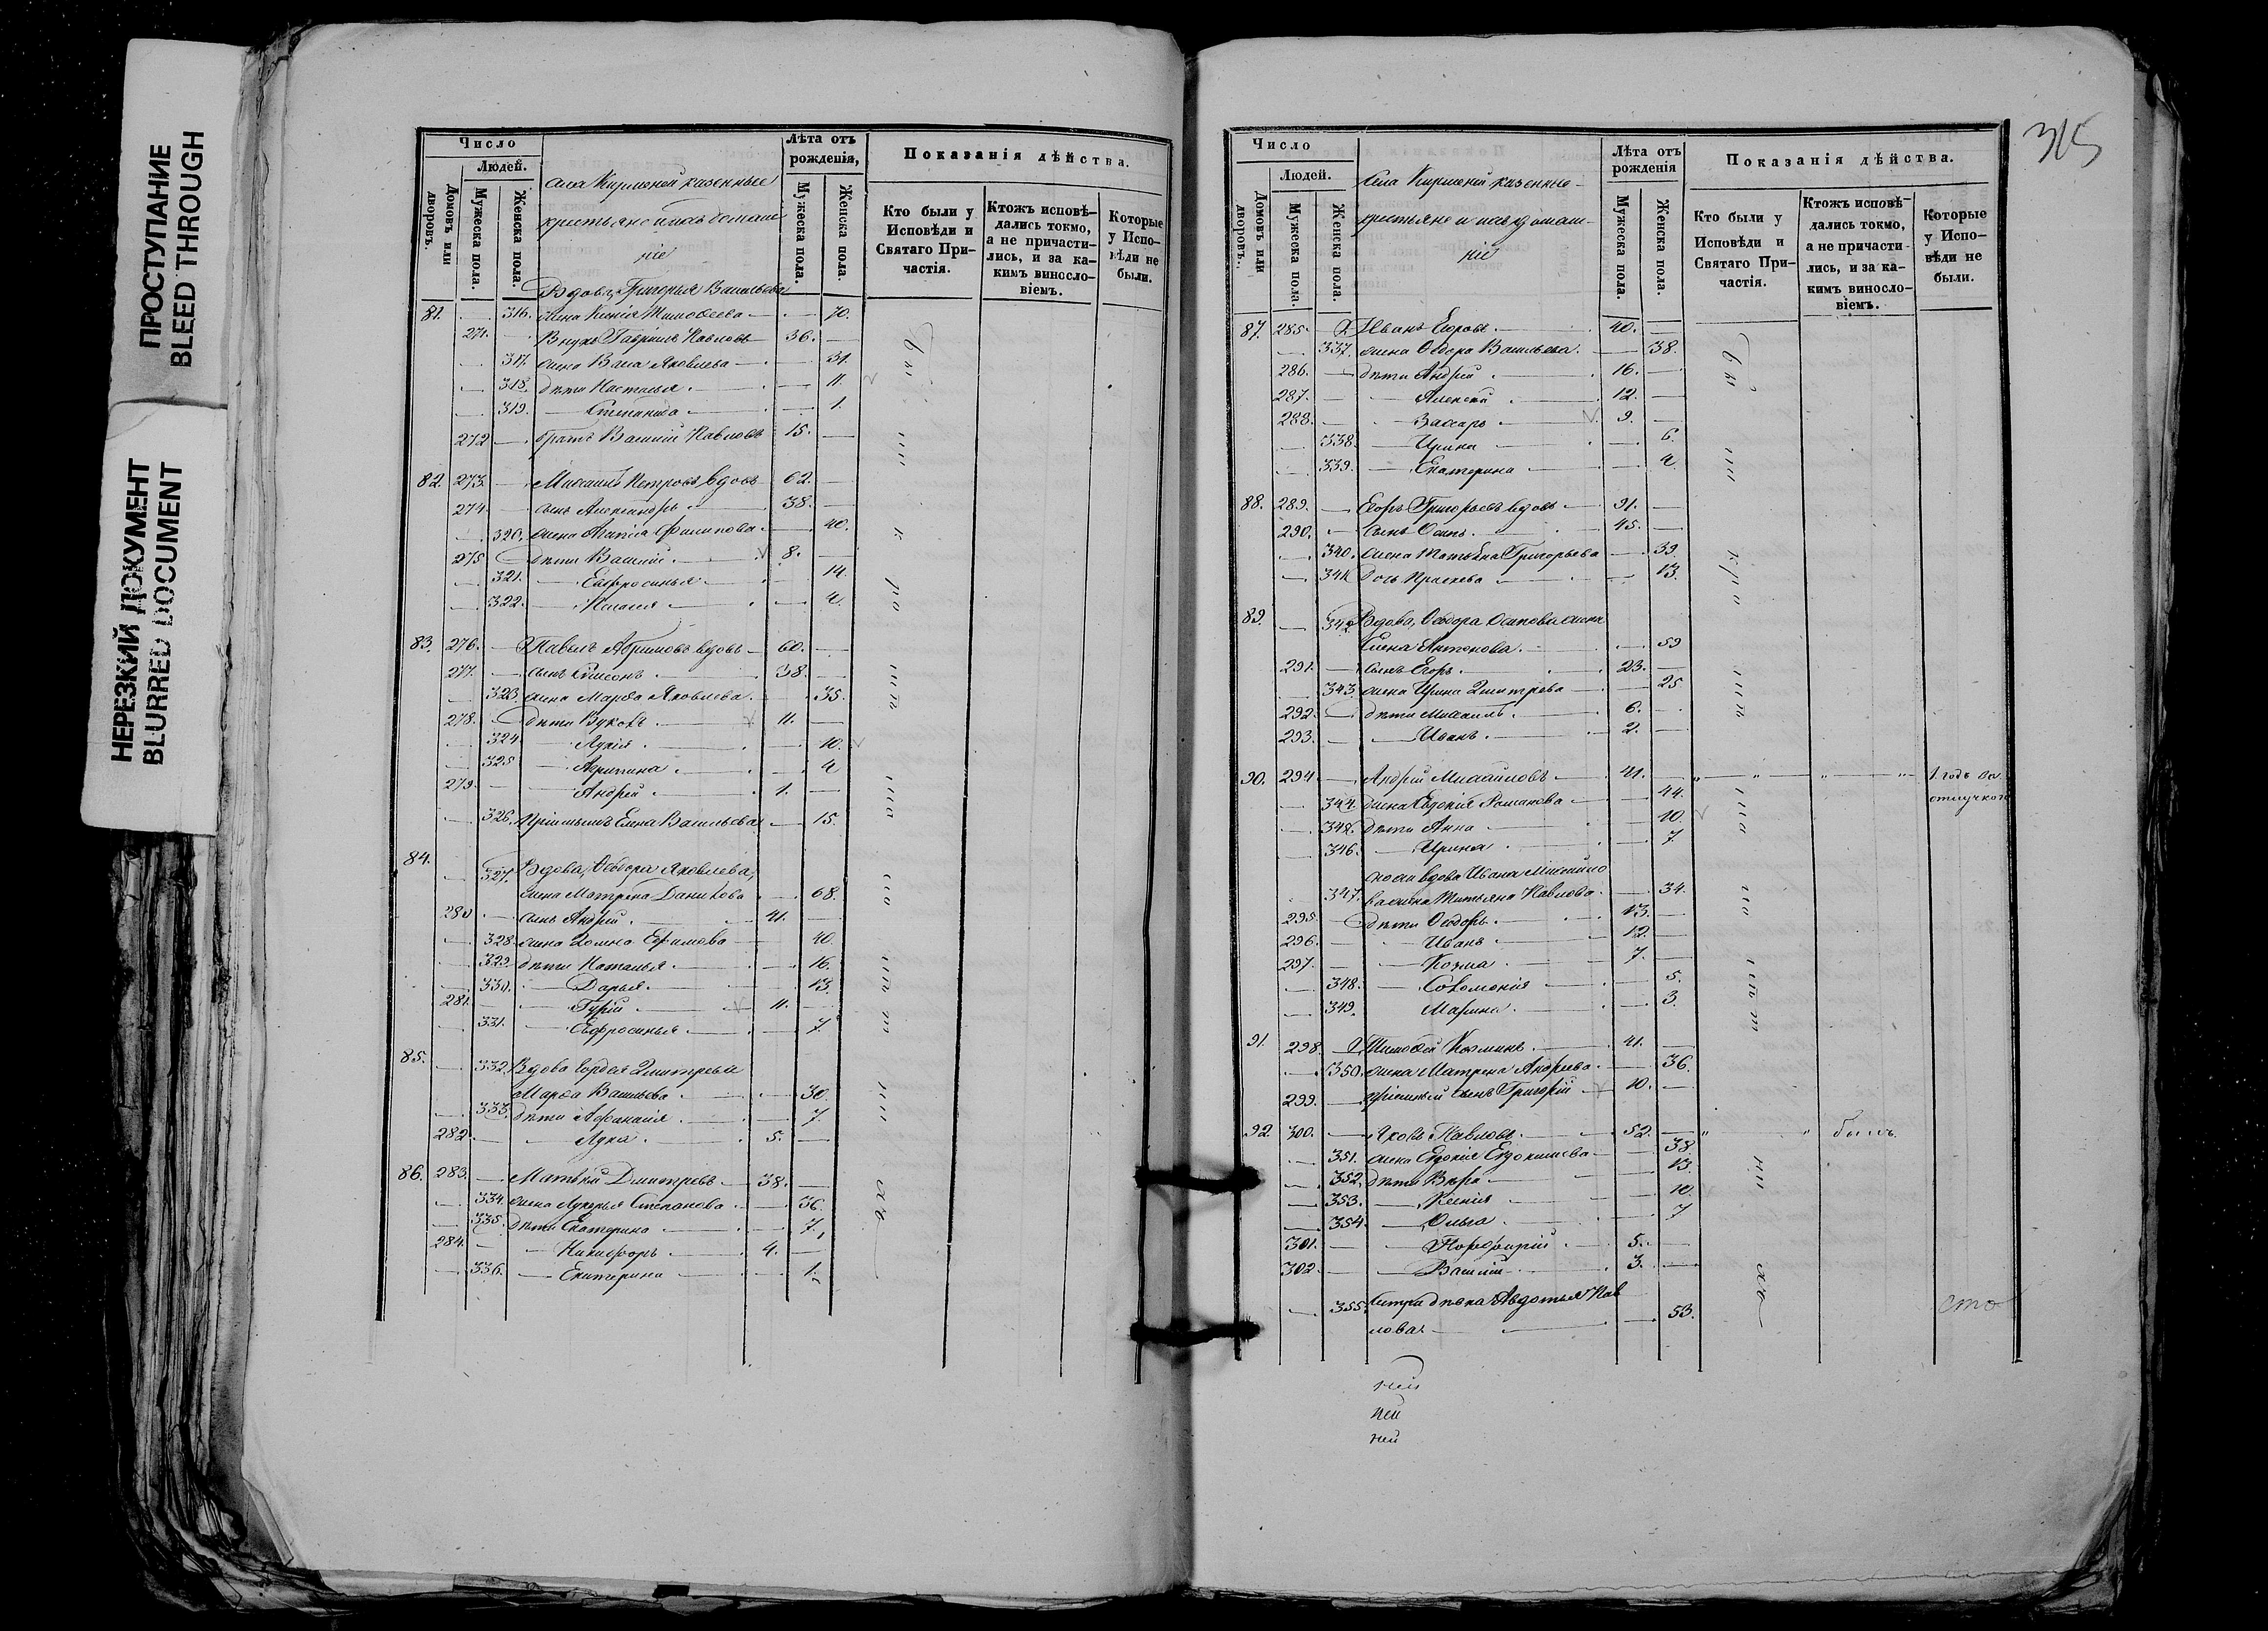 ПРОСТУПАНИЕ
BLEED THROUGH
НЕРЕЗКИЙ ДОКУМЕНТ
BLURRED DOCUMENT
Число
Людей.
Домовъ или дворовъ.
Мужеска пола.
Женска пола.
Лѣта отъ рожденія,
Мужеска пола.
Женска пола.
Показанія дѣйства.
Кто были у Исповѣди и Святаго При-
частія.
Ктожъ исповѣ-
дались токмо,
а не причасти-
лись, и за ка-
кимъ винослo-
віемъ.
Которые
у Испо-
вѣди не
были.
села казенные
крестьяне и ихъ домаш
ніе
Вдова, Григорья Васильева
81. 316. жена Ксенія Тимоѳеева 70.
271. Внукъ Гавріилъ Павловъ 36.
317. жена Васса Яковлева 31.
318. дѣти Настасья 11.
319. Степанида 1.
272 братъ Василій Павловъ 15.
82. 273. Михаилъ Петровъ вдовъ 62.
274. сынъ Александръ 38.
320. жена Филипова 40.
275 дѣти Василій 8.
321. Евфросинья 14.
322. 4.
83. 276. Павелъ Абрамовъ вдовъ 60.
277. сынъ Симеонъ 38.
323. жена Марѳа Яковлева 35.
278. дѣти 11.
324 10.
325 Агрипина 4
279. Андрей 1.
326. Пріемышъ Елена Васильева 15.
84. 327. Вдова, Ѳеодора Яковлева,
жена Матрена Данилова 68.
280 сынъ Андрей 41.
328. жена Домна Ефимова 40.
329. дѣти Наталья 16.
330. Дарья 13.
281. Гурій 11.
331. Евфросинья 7.
85. 332. Вдова Гордея Дмитрева
Марѳа Васильева 30.
333. дѣти Аѳанасія 7.
282. Лука 5.
86. 283. Матвѣй Дмитревъ 38.
334. жена Лукерья Степанова 36.
335. дѣти Екатерина 7.
284. Никифоръ 4.
336. Екатерина 1.
315
Число
Людей.
Домовъ или дворовъ.
Мужеска пола.
Женска пола.
Лѣта отъ рожденія
Мужеска пола.
Женска пола.
Показанія дѣйства.
Кто были у
Исповѣди и
Святаго При-
частія.
Ктожъ исповѣ-
дались токмо,
а не причасти-
лись, и за ка-
кимъ винослo-
віемъ.
Которые
у Испо-
вѣди не
были.
Села казенные
крестьяне и ихъ домаш-
ніе
87. 285. Иванъ Егоровъ 40.
337. жена Ѳедора Васильева 38.
286. дѣти Андрей 16.
287. Алексѣй 12.
288. Захаръ 9.
338. Ирина 6.
339. Екатерина 4
88. 289. Егоръ Григорьевъ вдовъ 91.
290. сынъ Осипъ 45.
340. жена Татьяна Григорьева 39.
341. дочь Прасковья 13.
89. 342. Вдова, Ѳеодора Осипова жена
Елена Антонова 59
291. сынъ Егоръ 23.
343. жена Ирина Дмитрева 25
292. дѣти Михаилъ 6.
293. Иванъ 2.
90. 294 Андрей Михайловъ 41. 1. годъ
344. жена Евдокія Романова 44.
345. дѣти Анна 10.
346. Ирина 7.
вдова Ивана Михайло
347. ва жена Татьяна Павлова 34.
295. дѣти Ѳеодоръ 13.
296. Иванъ 12.
297. Козма 7.
348. Соломонія 5.
349. Марина 3.
91. 298. Тимоѳей Козминъ 41.
350. жена Матрена Андреева 36.
299. пріемный сынъ Григорій 10.
92. 300. Яковъ Павловъ 52. былъ.
351. жена Евдокія Евдокимова 38
352. дѣти Вѣра 13.
353. Ксенія 10.
354. Ольга 7
301. Порфирій 5.
302. Василій 3.
355. Сестра дѣвка Авдотья Пав
лова 53.
сто